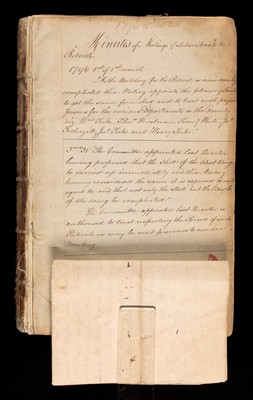 Minutes of Meetings of Subscribers to the
Retreat.
1796 1st of 1st month
As the Building for the Retreat is now nearly
completed this Meeting appoints the following
to get the same furnished and to treat with proper
persons for the various Departments in the Family
viz Wm Tuke, Thos
Jno Tuke and Henry Tuke.
The Committee appointed last Quarter
having proposed that the Shell of the West Wing
be carried up immediately and this Meeting
having considered the same it is
agreed to, and that not only the Shell but the whole
of the wing be completed.
The Committee appointed last Quarter is
authorised to treat respecting the Terms of such
Patients as may be sent previous to our next
Meeting